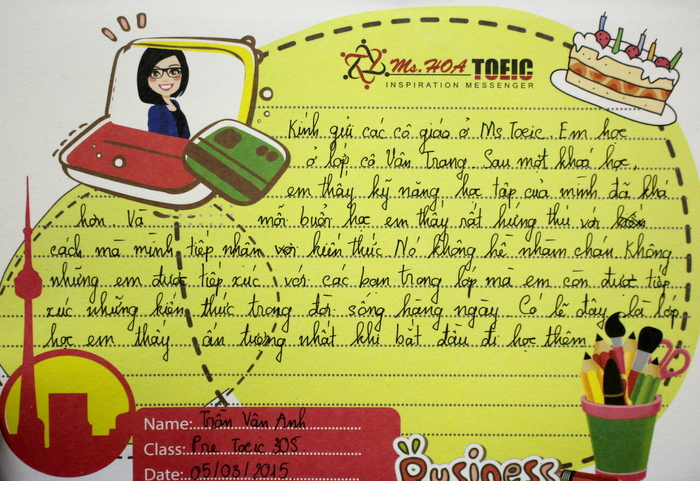 Ms. HOA TOEIC
INSPIRATION MESSENGER
Kính gửi các cô giáo ở Ms Toeic. Em học
ở lớp cô Vân Trang. Sau một khoá học,
em thấy kỹ năng học tập của mình đã khá
hơn. Và mỗi buổi học em thấy rất hứng thú với
cách mà mình tiếp nhận kiến thức. Nó không hề nhàm chán. Không
những em được tiếp xúc với các bạn trong lớp mà em còn được tiếp
xúc những kiến thức trong đời sống hàng ngày. Có lẽ đây là lớp
học em thấy ấn tượng nhất khi bắt đầu đi học thêm.
Name: Trần Vân Anh
Class: Pre Toeic 305
Date: 05/03/2015
Business